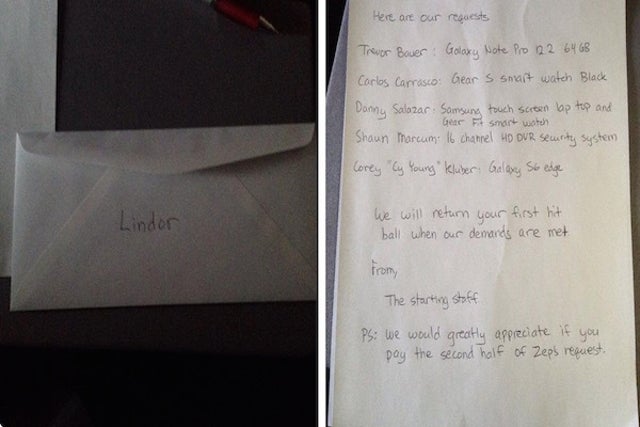 Lindor
Here are our requests
Trevor Bauer: Galaxy Note Pro 12.2 64GB
Carlos Carrasco: Gear S smart watch Black
Danny Salazar: Samsung touch screen lap top and
Gear Fit smart watch
Shaun Marcum: 16 channel HD DVR security system
Corey "Cy Young" Kluber: Galaxy S6 edge
We will return your first hit
ball when our demands are met.
From,
The starting staff.
PS: We would greatly appreciate if you
pay the second half of Zep's request.